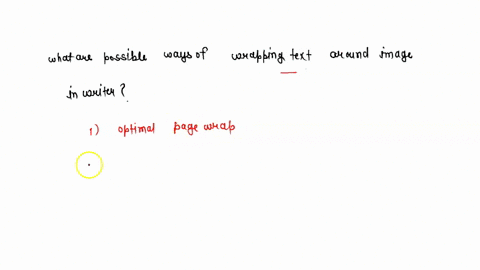 what are possible ways of wrapping text around image
in writer?
1) optimal page wrap